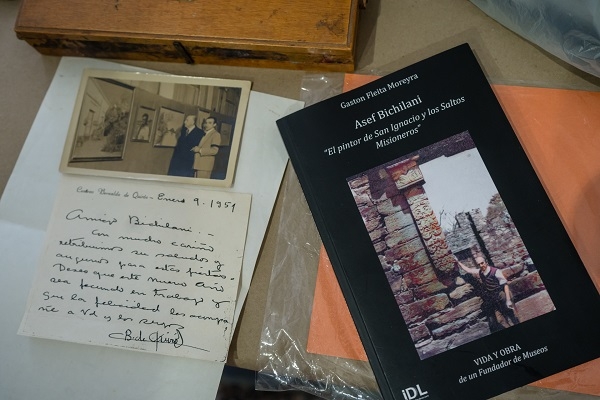 Enero 9-1951
Amigo Bichilani:-
con mucho cariño
retribuimos su saludo y
augurios para estas fiestas.-
Deseo que este nuevo año
sea fecundo en trabajo y
que la felicidad los acompa
ñe a Vd y los suyos
Gaston Fleita Moreyra
Asef Bichilani
"El pintor de San Ignacio y los Saltos
Misioneros"
VIDA Y OBRA
de un Fundador de Museos
iDL